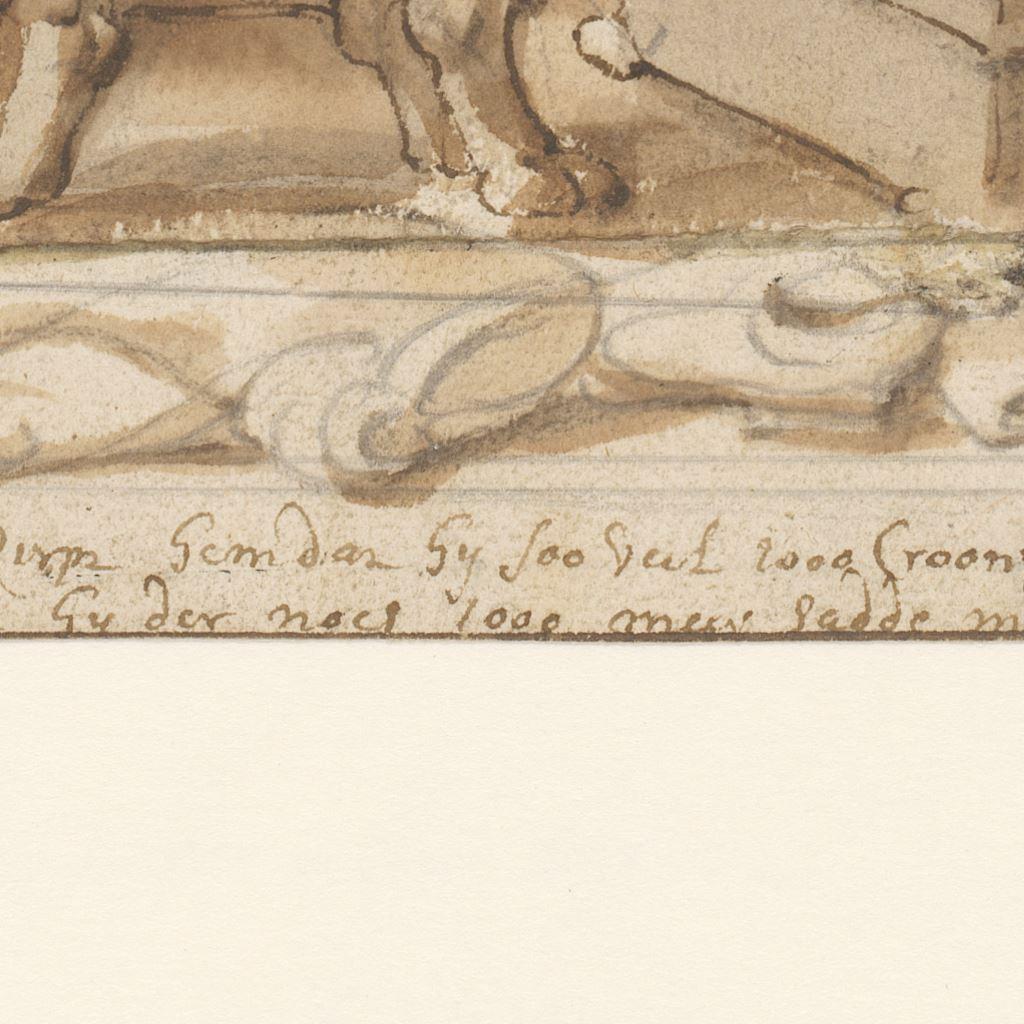 hem dan hy soo veel 1000 Croon
hy der noch 1000 meer hadde m